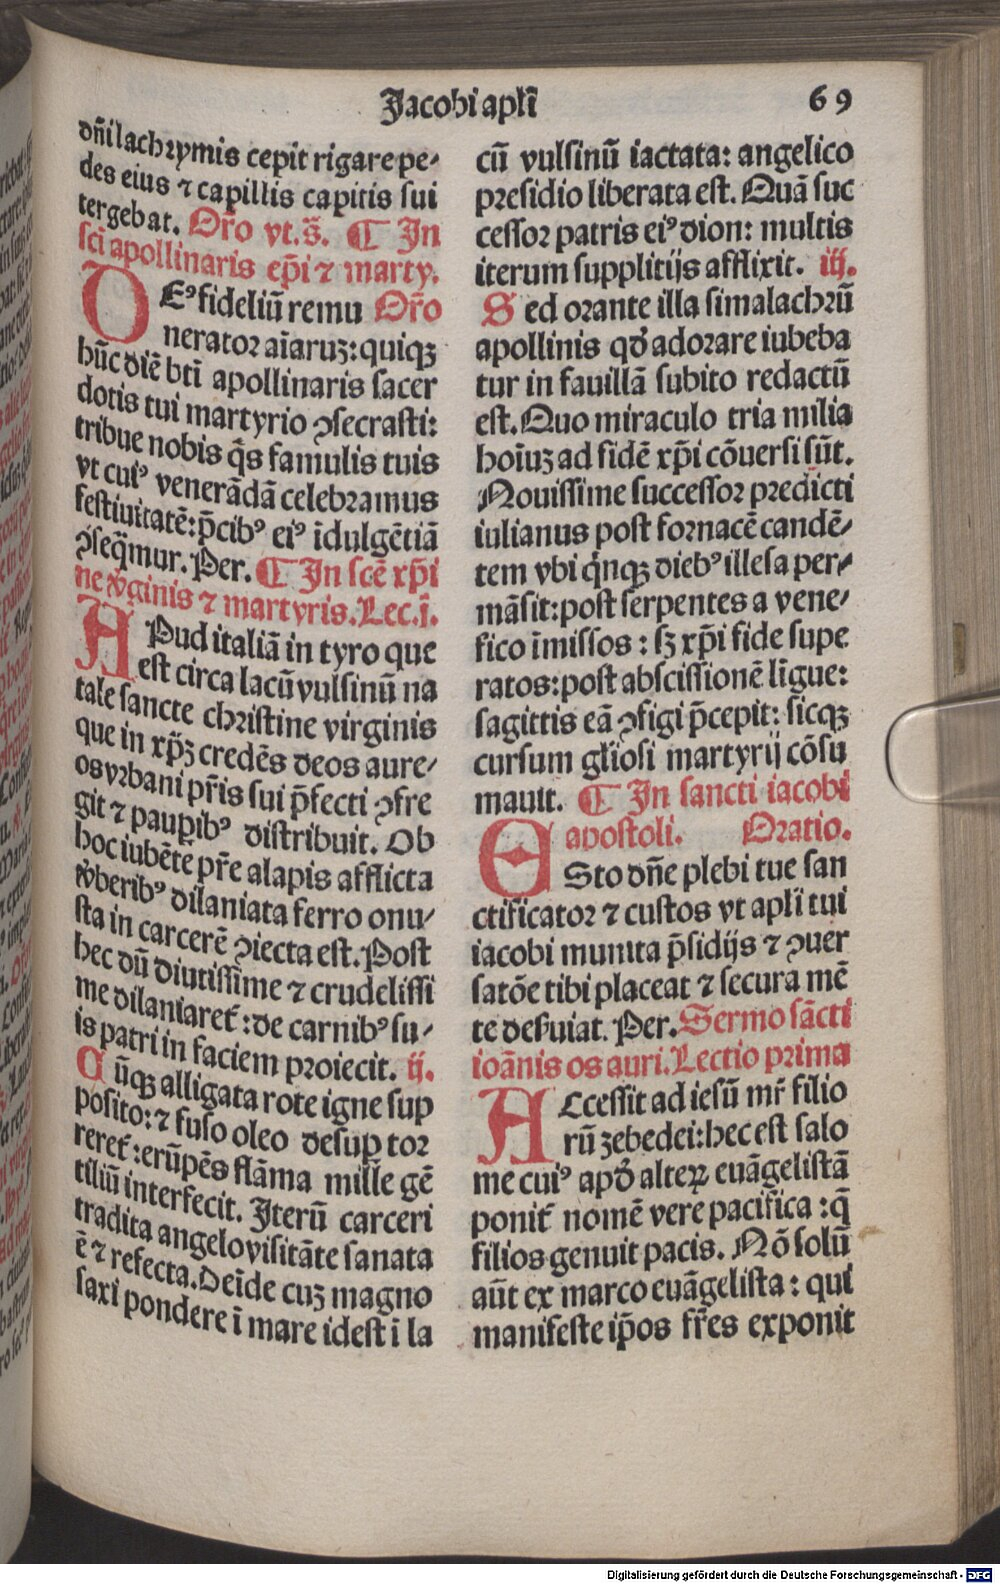 Jacobi apłi 69
dñi lachrymis cepit rigare pe⸗
des eius ⁊ capillis capitis sui
tergebat. Or̃o vt.s̃. ¶ In
sci apollinaris ep̃i ⁊ marty.
DEꝰ fideliũ remu Or̃o
nerator aĩaruꝫ: quiqꝫ
hũc diẽ bti apollinaris sacer
dotis tui martyrio ꝯsecrasti:
tribue nobis q̃s famulis tuis
vt cuiꝰ venerãdã celebramus
festiuitatẽ: p̃cibꝰ eiꝰ ĩdulgẽtiã
ꝯseq̃mur. Per. ¶ In scẽ xp̃i
ne v̾ginis ⁊ martyris. Lec.i.
APud italiã in tyro que
est circa lacũ vulsinũ na
tale sancte christine virginis
que in xp̃ꝫ credẽs deos aure⸗
os vrbani pr̃is sui p̃fecti ꝯfre
git ⁊ paupibꝰ distribuit. Ob
hoc iubẽte pr̃e alapis afflicta
v̾beribꝰ dilaniata ferro onu⸗
sta in carcerẽ ꝯiecta est. Post
hec dũ diutissime ⁊ crudelissi
me dilaniaret᷑: de carnibꝰ su⸗
is patri in faciem proiecit. ij.
Cũqꝫ alligata rote igne sup
posito: ⁊ fuso oleo desup tor
reret᷑: erũpẽs flãma mille gẽ
tiliũ interfecit. Iterũ carceri
tradita angelo visitãte sanata
ẽ ⁊ refecta. Deĩde cuꝫ magno
saxi pondere ĩ mare idest ĩ la
cũ vulsinũ iactata: angelico
presidio liberata est. Quã suc
cessor patris eiꝰ dion: multis
iterum supplitijs afflixit. iij.
Sed orante illa simalachrũ
apollinis qđ adorare iubeba
tur in fauillã subito redactũ
est. Quo miraculo tria milia
hoĩuꝫ ad fidẽ xp̃i cõuersi sũt.
Nouissime successor predicti
iulianus post fornacẽ candẽ⸗
tem vbi q̃nqꝫ diebꝰ illesa per⸗
mãsit: post serpentes a vene⸗
fico ĩmissos: sꝫ xp̃i fide supe
ratos: post abscissionẽ ligue:
sagittis eã ꝯfigi p̃cepit: sicqꝫ
cursum gl̃iosi martyrij cõsu
mauit. ¶ In sancti iacobi
apostoli. Oratio.
ESto dñe plebi tue san
ctificator ⁊ custos vt apłi tui
iacobi munita p̃sidijs ⁊ ꝯuer
satõe tibi placeat ⁊ secura mẽ
te deẜuiat. Per. Sermo sãcti
ioãnis os auri. Lectio prima
ACcessit ad iesũ mr̃ filio
rũ zebedei: hec est salo
me cuiꝰ apđ alteꝝ euãgelistã
ponit᷑ nomẽ vere pacifica: q̃
filios genuit pacis. Nõ solũ
aũt ex marco euãgelista: qui
manifeste ip̃os fr̃es exponit
Digitalisierung gefördert durch die Deutsche Forschungsgemeinschaft - DFG